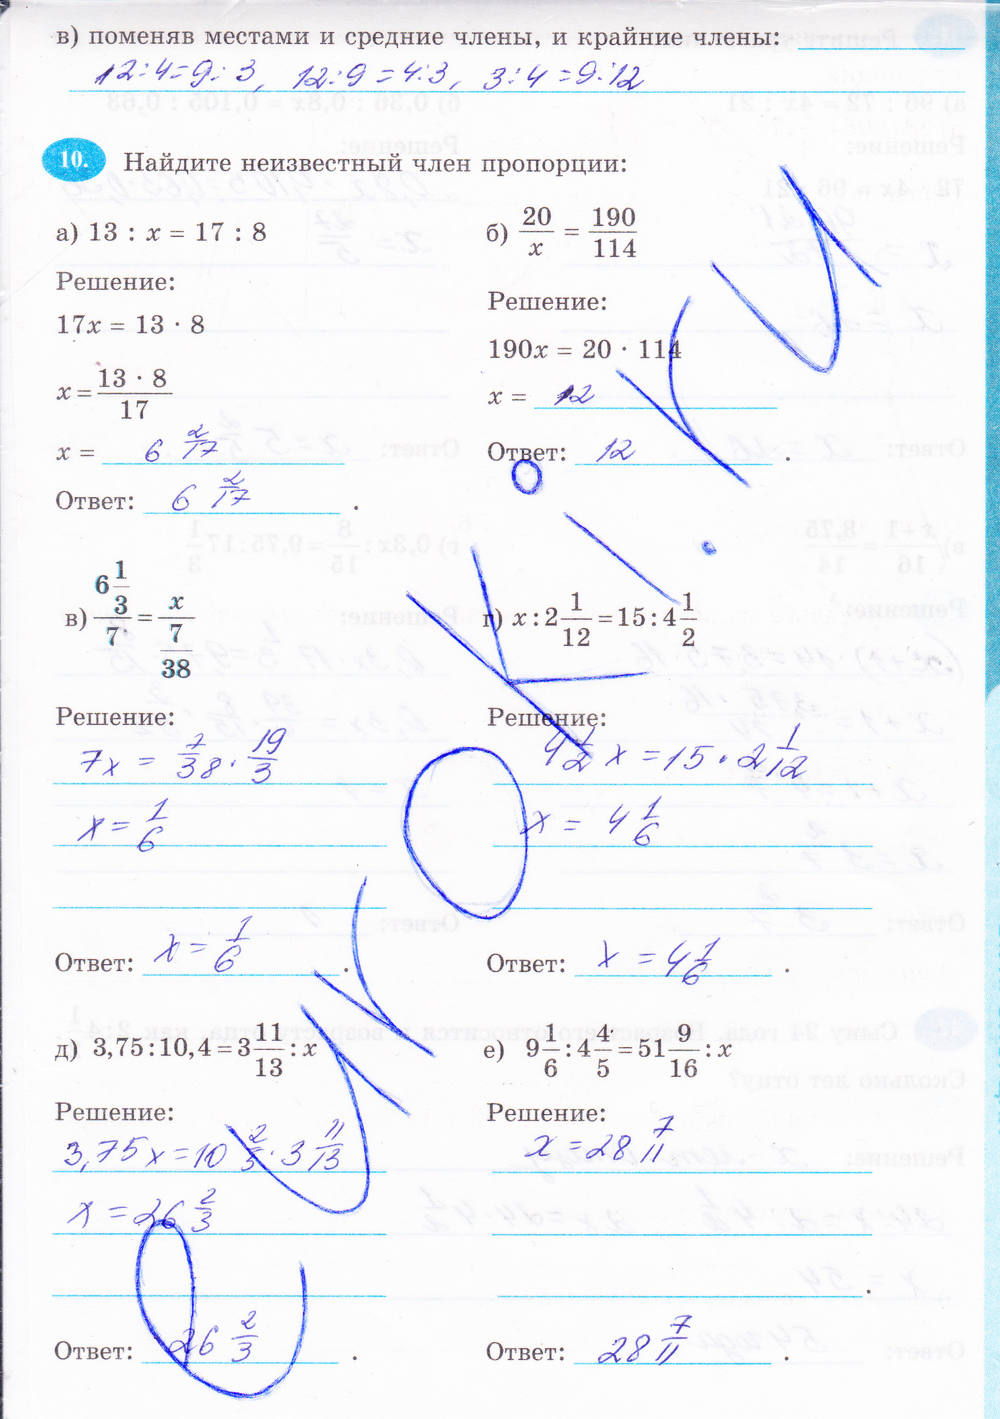 в) поменяв местами и средние члены, и крайние члены:
12:4=9:3, 12:9=4:3, 3:4=9:12
10. Найдите неизвестный член пропорции:
а) 13 : x = 17 : 8
Решение:
17x = 13 · 8
x = 13 · 8 / 17
x = 6 2/17
Ответ: 6 2/17.
б) 20/x = 190/114
Решение:
190x = 20 · 114
x = 12
Ответ: 12.
в) 6 1/3 / 7 = x / 7/38
Решение:
7x = 7/38 · 19/3
x = 1/6
Ответ: x = 1/6.
г) x : 2 1/12 = 15 : 4 1/2
Решение:
4 1/2 x = 15 · 2 1/12
x = 4 1/6
Ответ: x = 4 1/6.
д) 3,75 : 10,4 = 3 11/13 : x
Решение:
3,75x = 10 2/5 · 3 11/13
x = 26 2/3
Ответ: 26 2/3.
е) 9 1/6 : 4 4/5 = 51 9/16 : x
Решение:
x = 28 7/11
.
Ответ: 28 7/11.